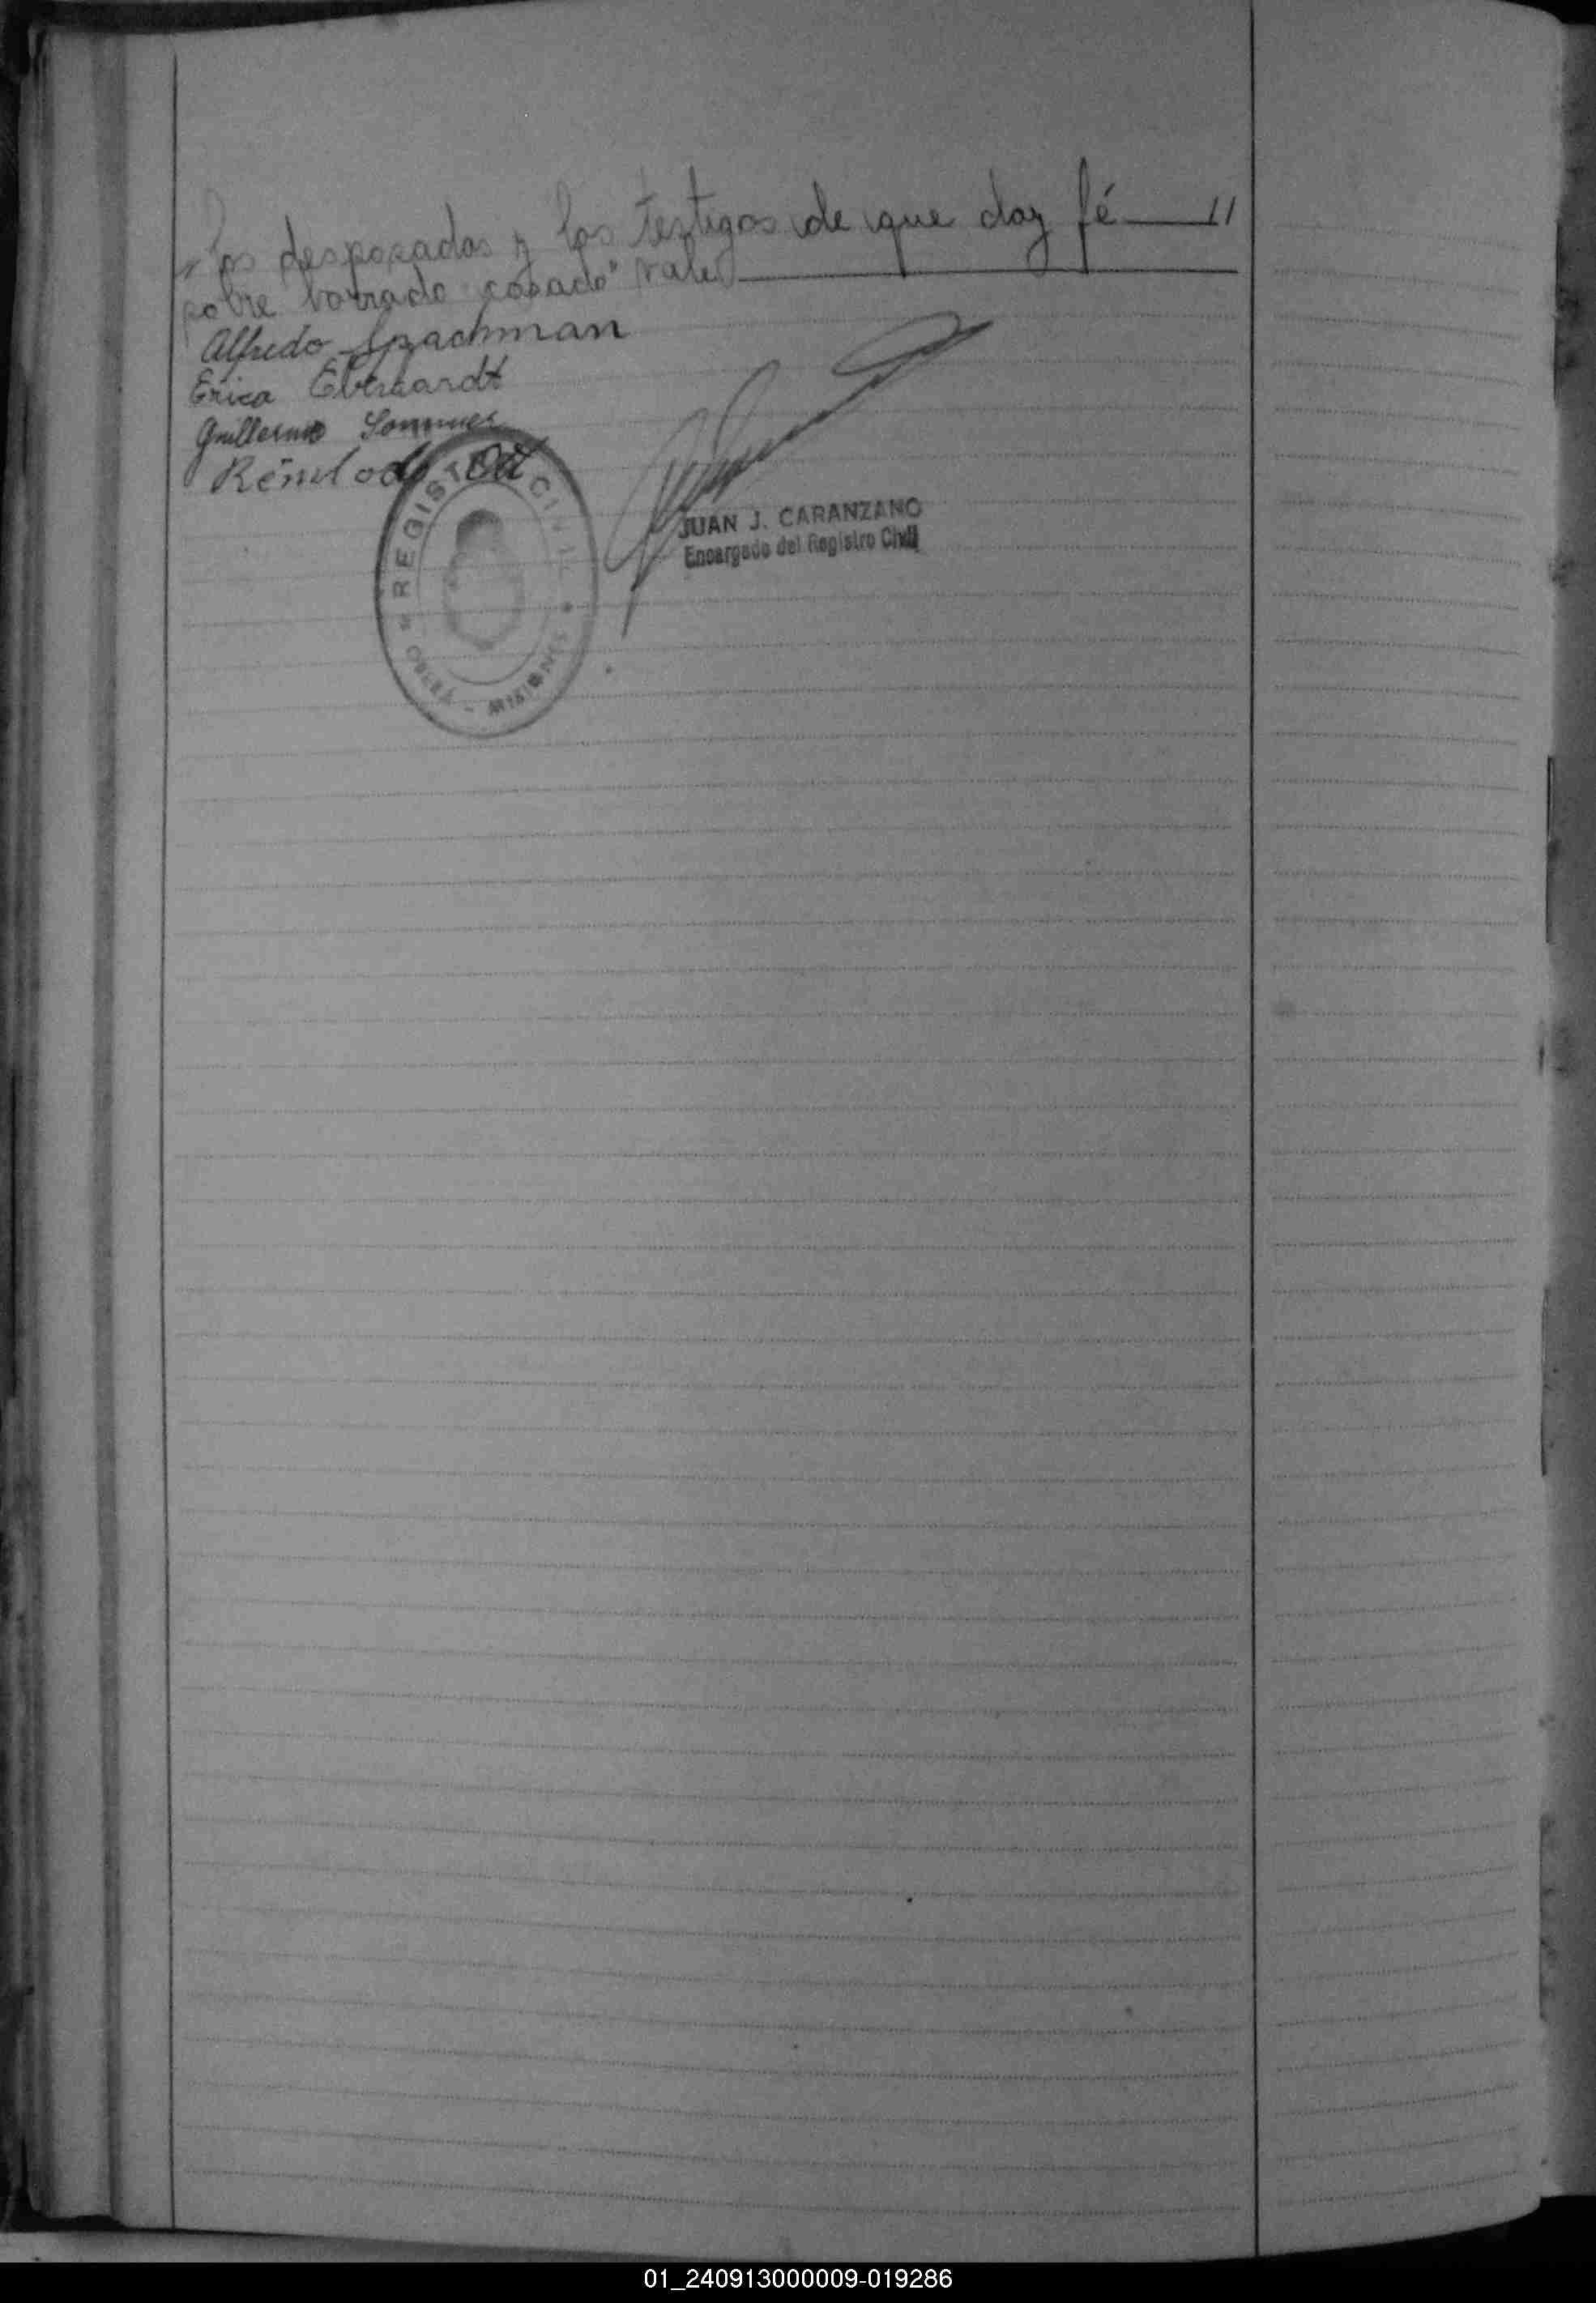 los desposados y los testigos de que doy fé — //
sobre borrado "casado" vale
Alfredo Spachman
Erica Eberhardt
Guillermo Sommer
Ott
REGISTRO CIVIL
OBERÁ - MISIONES
JUAN J. CARANZANO
Encargado del Registro Civil
01_240913000009-019286